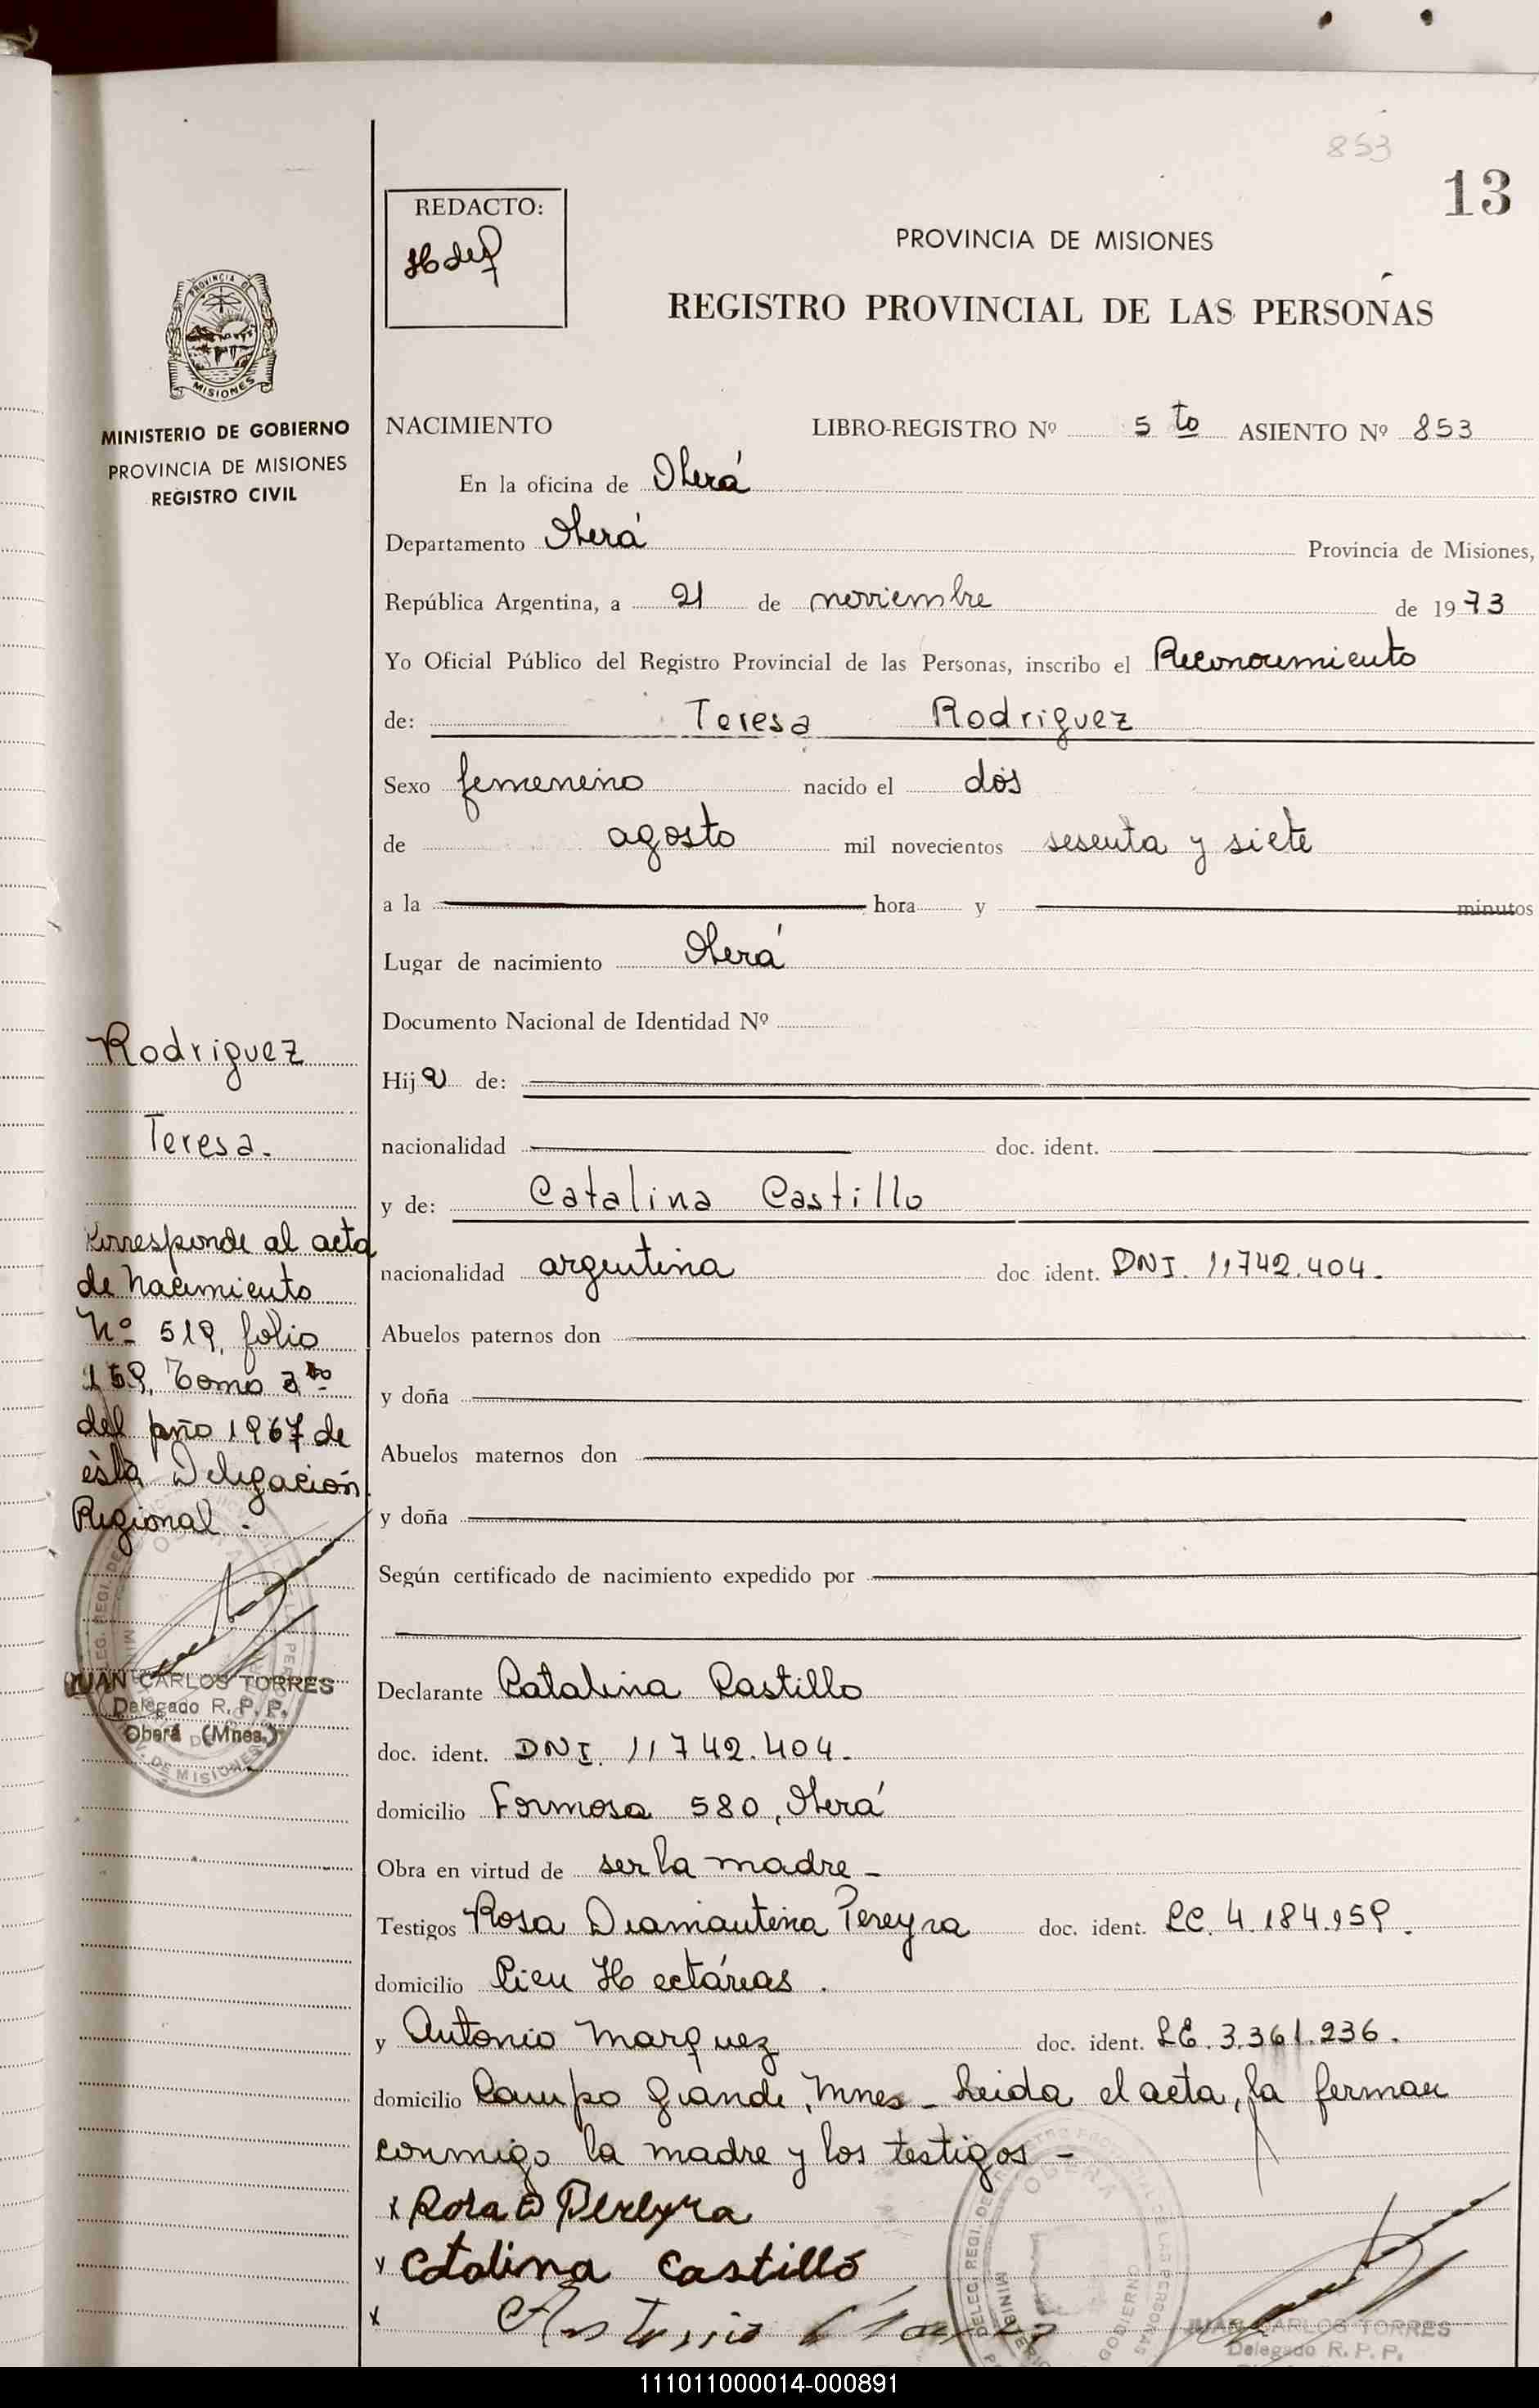 853
13
REDACTO:
PROVINCIA DE MISIONES
REGISTRO PROVINCIAL DE LAS PERSONAS
PROVINCIA DE
MISIONES
MINISTERIO DE GOBIERNO
PROVINCIA DE MISIONES
REGISTRO CIVIL
NACIMIENTO LIBRO-REGISTRO Nº 5 to ASIENTO Nº 853
En la oficina de Oberá
Departamento Oberá Provincia de Misiones,
República Argentina, a 21 de noviembre de 1973
Yo Oficial Público del Registro Provincial de las Personas, inscribo el Reconocimiento
de: Teresa Rodriguez
Sexo femenino nacido el dos
de agosto mil novecientos sesenta y siete
a la hora y minutos
Lugar de nacimiento Oberá
Documento Nacional de Identidad Nº
Hija de:
nacionalidad doc. ident.
y de: Catalina Castillo
nacionalidad argentina doc ident. DNI. 11742.404.
Abuelos paternos don
y doña
Abuelos maternos don
y doña
Según certificado de nacimiento expedido por
Declarante Catalina Castillo
doc. ident. DNI. 11742.404.
domicilio Formosa 580, Oberá
Obra en virtud de ser la madre -
Testigos Rosa Diamantina Pereyra doc. ident. LC. 4.184.159.
domicilio Cien Hectáreas.
y Antonio Marquez doc. ident. LE. 3.361.236.
domicilio Campo Grande, Mnes - Leida el acta, la firman
conmigo la madre y los testigos -
x Rosa D Pereyra
x Catalina Castillo
x Antonio
JUAN CARLOS TORRES
Delegado R. P. P.
Rodriguez
Teresa.
Corresponde al acta
de Nacimiento
Nº 519, folio
159, Tomo 3ro
del año 1967 de
esta Delegación
Regional.
JUAN CARLOS TORRES
Delegado R. P. P.
Oberá (Mnes.)
111011000014-000891